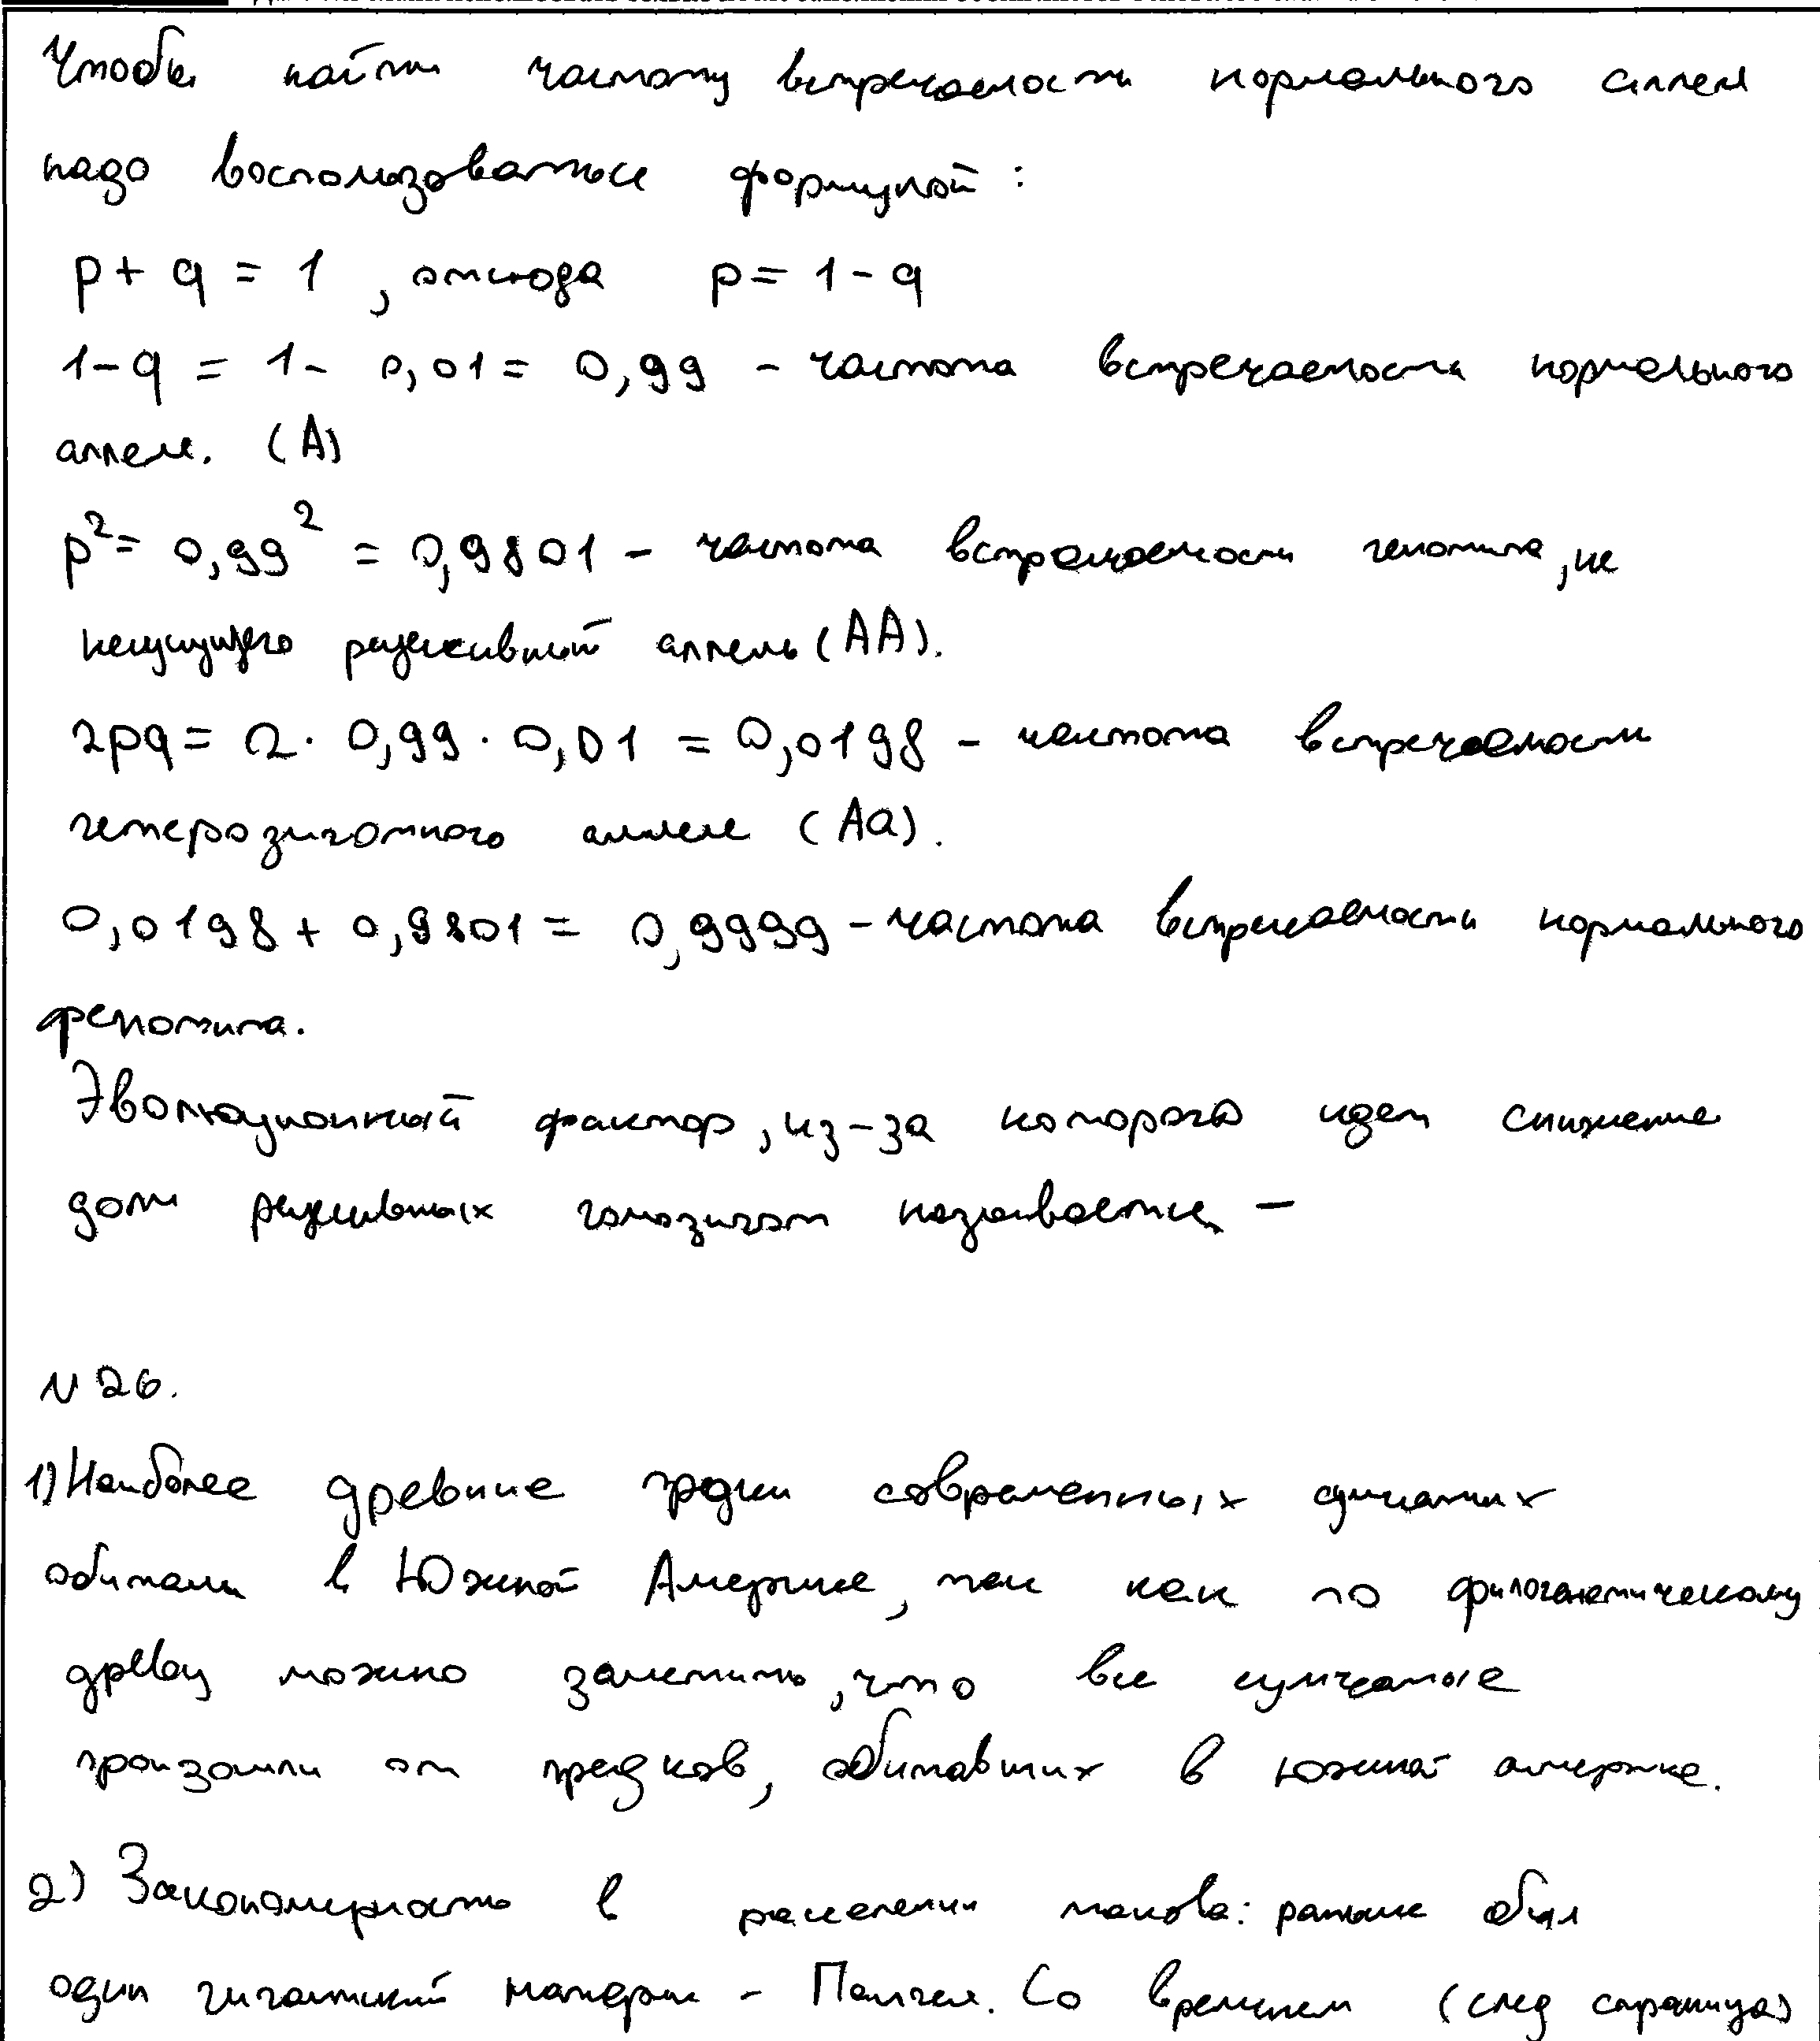 Чтобы найти частоту встречаемости нормального аллеля
надо воспользоваться формулой:
p + q = 1 , отсюда p = 1 - q
1-q = 1- 0,01 = 0,99 - частота встречаемости нормального
аллеля. (А)
p² = 0,99² = 0,9801 - частота встречаемости генотипа, не
несущущего рецессивный аллель (АА).
2pq = 2 · 0,99 · 0,01 = 0,0198 - частота встречаемости
гетерозиготного аллеля (Аа).
0,0198 + 0,9801 = 0,9999 - частота встречаемости нормального
фенотипа.
Эволюционный фактор, из-за которого идет снижение
доли рецессивных гомозигот называется -
N 26.
1) Наиболее древние предки современных сумчатых
обитали в Южной Америке, так как по филогенетическому
древу можно заметить, что все сумчатые
произошли от предков, обитавших в южной америке.
2) Закономерность в расселении такова: раньше был
один гигантский материк - Пангея. Со временем (след страница)